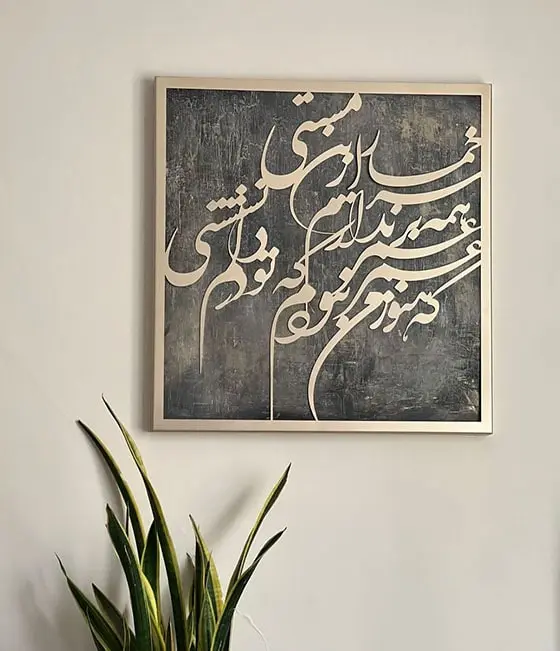 همه عمر برندارم سر ازین خمار مستی
که هنوز من نبودم که تو در دلم نشستی